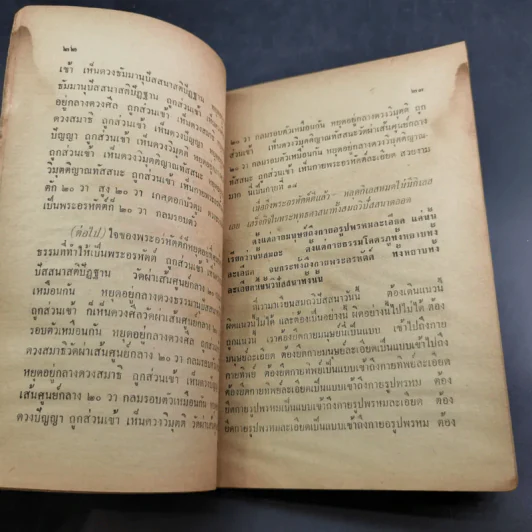 ๒๒
เข้า เห็นดวงธัมมานุปัสสนาสติปัฏฐาน
ธัมมานุปัสสนาสติปัฏฐาน ถูกส่วนเข้า
อยู่กลางดวงศีล ถูกส่วนเข้า เห็นดวง
ดวงสมาธิ ถูกส่วนเข้า เห็นดวงปัญญา
ปัญญา ถูกส่วนเข้า เห็นดวงวิมุตติ
วิมุตติ ถูกส่วนเข้า เห็นดวงวิมุตติญาณทัสสนะ
วิมุตติญาณทัสสนะ ถูกส่วนเข้า เห็นกายพระ
ตัก ๒๐ วา สูง ๒๐ วา เกตุดอกบัวตูม
เป็นพระอรหัตต์ ๒๐ วา กลมรอบตัว
(ต่อไป) ใจของพระอรหัตต์ก็หยุดอยู่ที่
ธรรมที่ทำให้เป็นพระอรหัตต์ ถูกส่วนเข้า
ปัสสนาสติปัฏฐาน วัดผ่าเส้นศูนย์กลาง
เหมือนกัน หยุดอยู่กลางดวงธรรมานุปัสสนา
ถูกส่วนเข้า ก็เห็นดวงศีลวัดผ่าเส้นศูนย์กลาง ๒๐
รอบตัวเหมือนกัน หยุดอยู่กลางดวงศีล ถูกส่วนเข้า
ดวงสมาธิวัดผ่าเส้นศูนย์กลาง ๒๐ วา กลมรอบตัว
หยุดอยู่กลางดวงสมาธิ ถูกส่วนเข้า เห็นดวงปัญญา
เส้นศูนย์กลาง ๒๐ วา กลมรอบตัวเหมือนกัน หยุดอยู่
ดวงปัญญา ถูกส่วนเข้า เห็นดวงวิมุตติ วัดผ่าเส้น
๒๓
๒๐ วา กลมรอบตัวเหมือนกัน หยุดอยู่กลางดวงวิมุตติ ถูก
ส่วนเข้า เห็นดวงวิมุตติญาณทัสสนะวัดผ่าเส้นศูนย์กลาง
๒๐ วา กลมรอบตัวเหมือนกัน หยุดอยู่กลางดวงวิมุตติญาณ
ทัสสนะ ถูกส่วนเข้า เห็นกายพระอรหัตต์ละเอียด สวยงาม
มาก นี่เป็นกายที่ ๑๘
เมื่อถึงพระอรหัตต์นี้แล้ว หลุดกิเลสหมดไม่มีกิเลส
เลย เสร็จกิจในพระพุทธศาสนาทั้งสมถวิปัสสนาตลอด
ตั้งแต่กายมนุษย์ถึงกายอรูปพรหมละเอียด แค่นั้น
เรียกว่าขั้นสมถะ ตั้งแต่กายธรรมโคตรภูทั้งหยาบทั้ง
ละเอียด จนกระทั่งถึงกายพระอรหัตต์ ทั้งหยาบทั้ง
ละเอียดนี้ขั้นวิปัสสนาทั้งนั้น
ที่เรามาเรียนสมถวิปัสสนาวันนี้ ต้องเดินแนวนี้
ผิดแนวนี้ไม่ได้ และต้องเป็นอย่างนี้ ผิดอย่างนี้ไปไม่ได้ ต้อง
ถูกแนวนี้ เราต้องยึดกายมนุษย์นี่เป็นแบบ เข้าไปถึงกาย
มนุษย์ละเอียด ต้องยึดกายมนุษย์ละเอียดเป็นแบบเข้าไปถึง
กายทิพย์ ต้องยึดกายทิพย์เป็นแบบเข้าถึงกายทิพย์ละเอียด
ต้องยึดกายทิพย์ละเอียดเป็นแบบเข้าถึงกายรูปพรหม ต้อง
ยึดกายรูปพรหมเป็นแบบเข้าถึงกายรูปพรหมละเอียด ต้อง
ยึดกายรูปพรหมละเอียดเป็นแบบเข้าถึงกายอรูปพรหม ต้อง